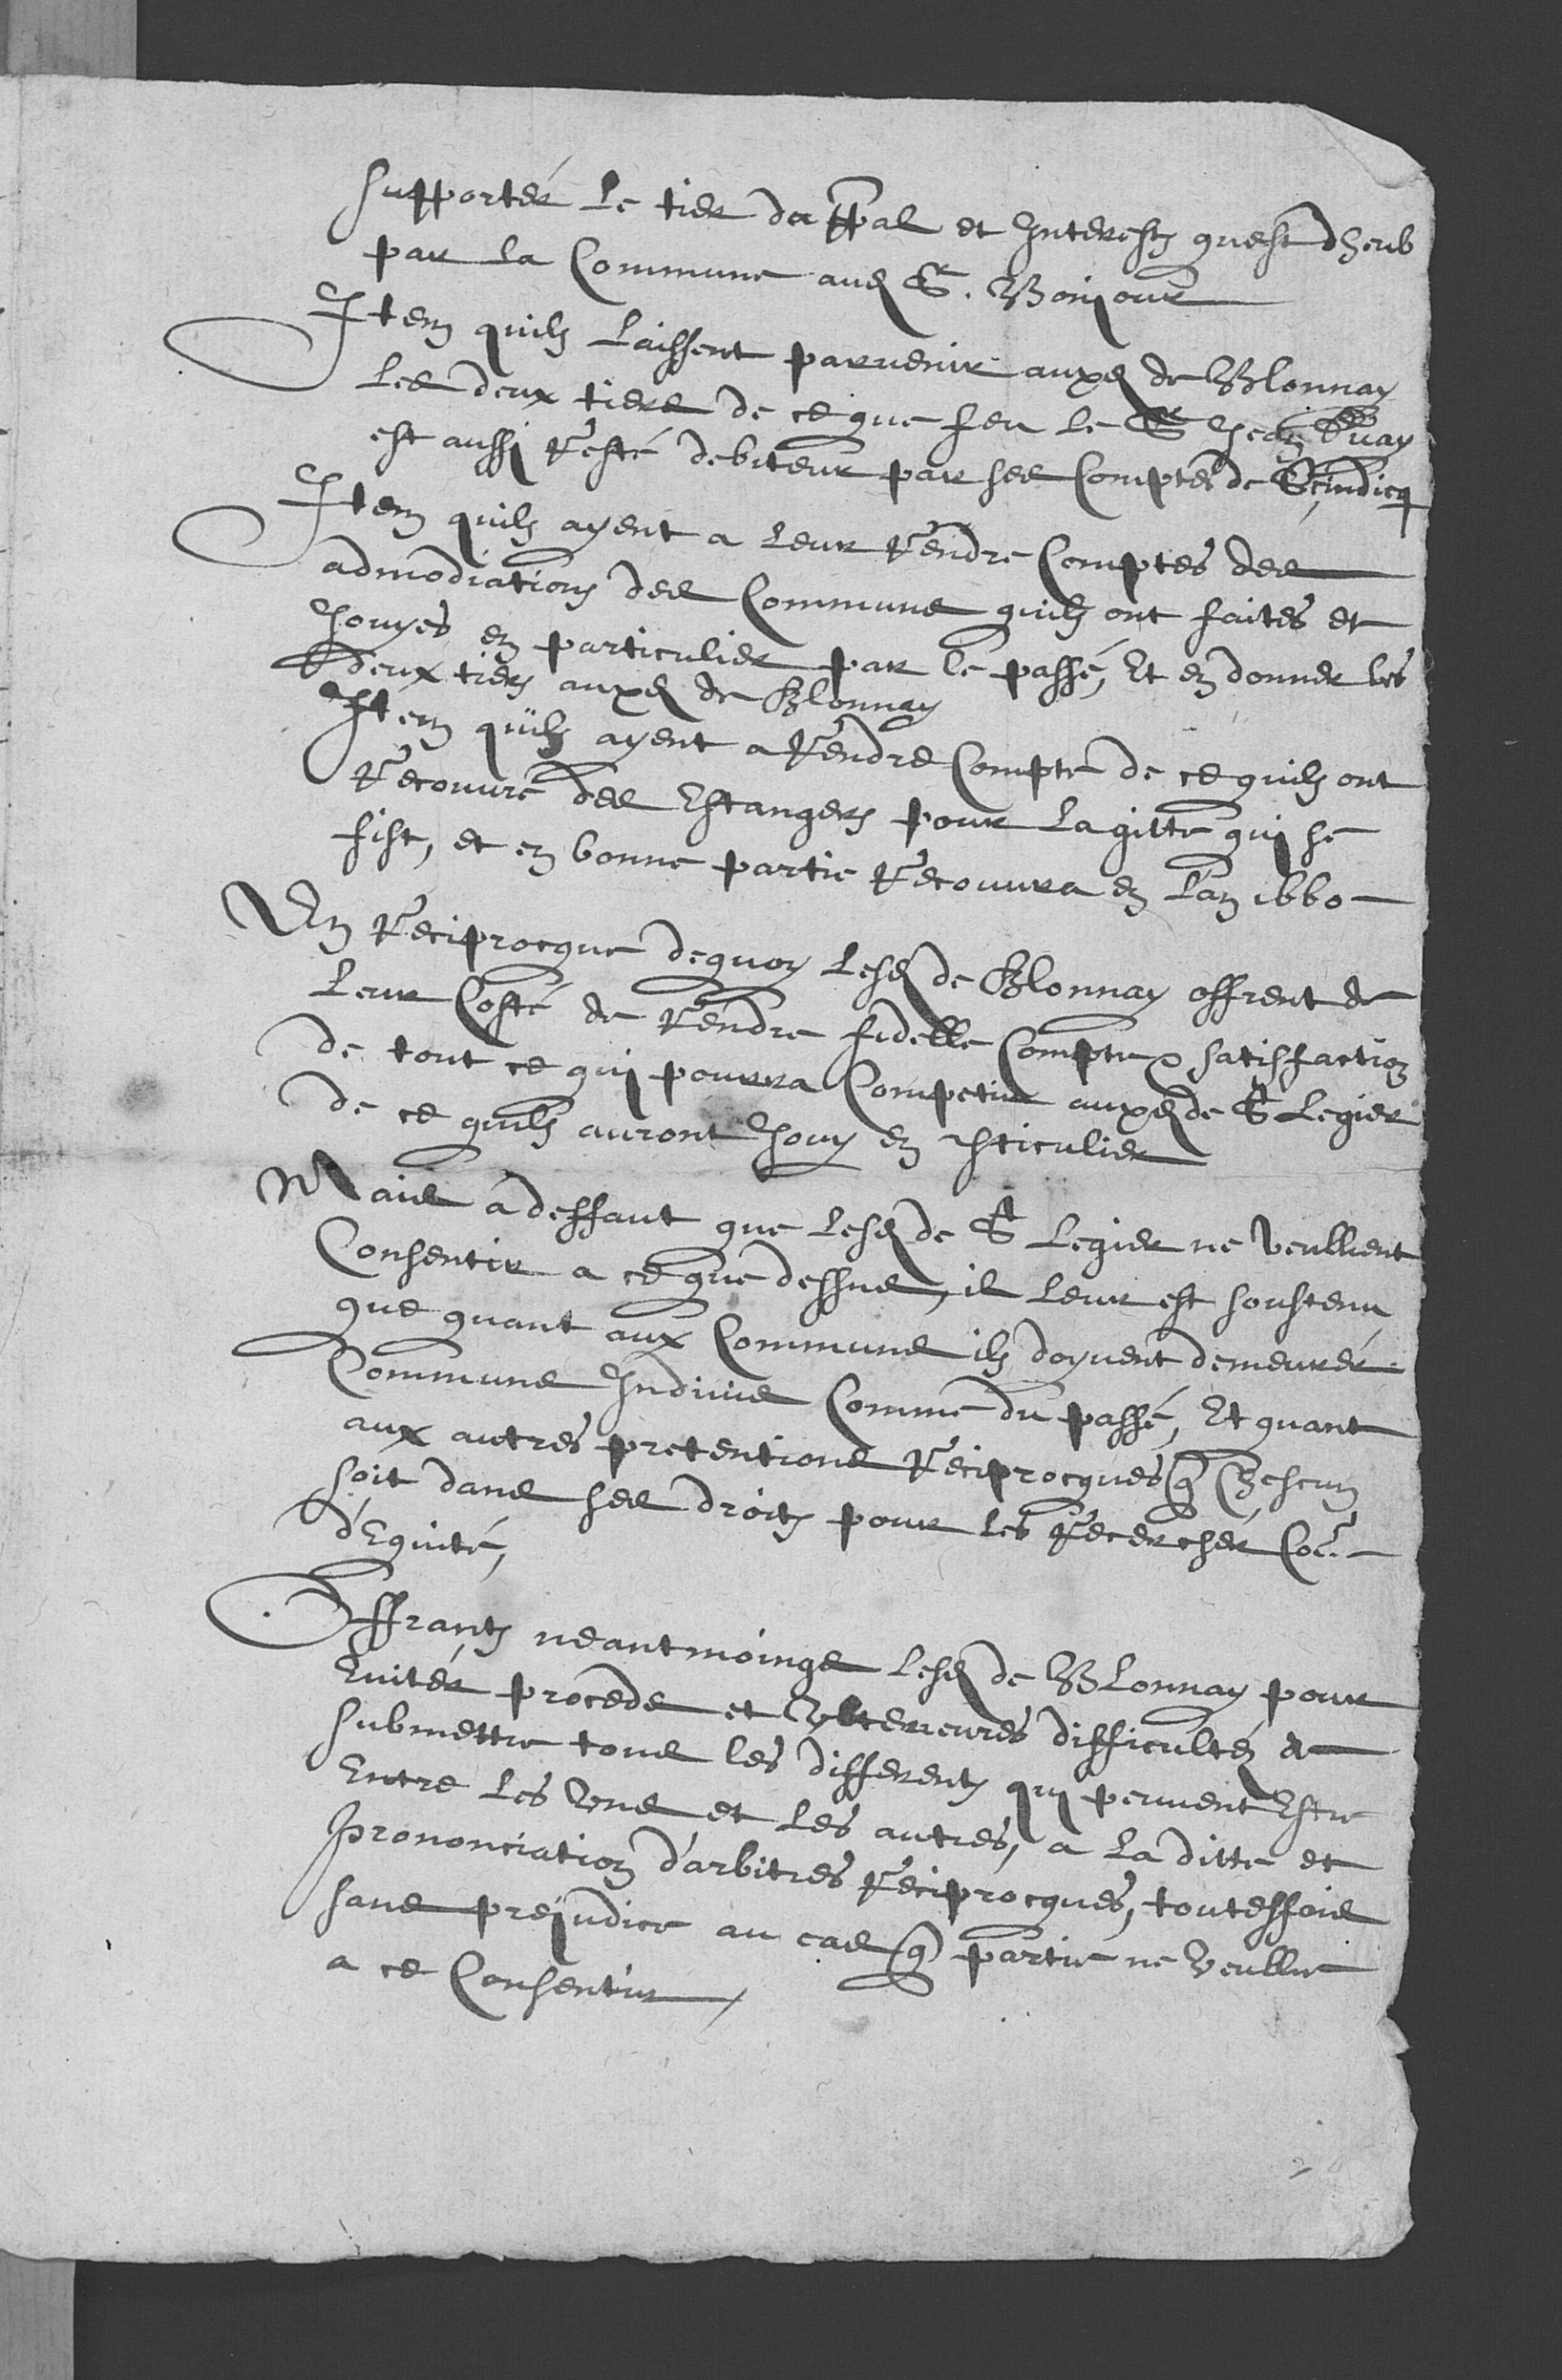 supportér le tier du ppal et Interests quest dheub
par la Commune aud Sr. Bonjour
Item quils laissent parvenir auxd de Blonnay
les deux tiers de ce que feu le Sr Jean
est aussi Resté debiteur par ses Comptes de Scindicq
Item quils ayent a leur Rendre Comptes des
admodiations des Communs quils ont faites et
Jouyes en particulier par le passé, Et en donner les
deux tiers auxd de Blonnay
Item quils ayent a Rendre Compte de ce quils ont
Recouvré des Estangers pour la gitte qui se
fist, et en bonne partie Recouvra en l'an 1660 -
En Reciprocque dequoy lesd de Blonnay offrent de
leur Costé de Rendre fidelle Compte & satisfaction
de tout ce qui pourra Competir auxd de St Legier
de ce quils auront Jouy en pticulier
Mais a deffaut que lesd de St Legier ne veullient
Consentir a ce que dessus, il leur est soustenu
que quant aux Communs ils doyvent demeurér
Communs Indivis Comme du passé, Et quant
aux autres pretentions Reciprocques q Chescun
soit dans ses droits pour les Recerchér Coe -
d'Equité,
Offrants neantmoings lesd de Blonnay pour
Evitér proceds et Vlterieures difficultéz de
submettre tous les differents qui peuvent Estre
Entre les Vns et les autres, a la ditte et
prononciation d'arbitres Reciprocques, touteffois
sans préjudice au cas q partie ne veullie
a ce Consentir